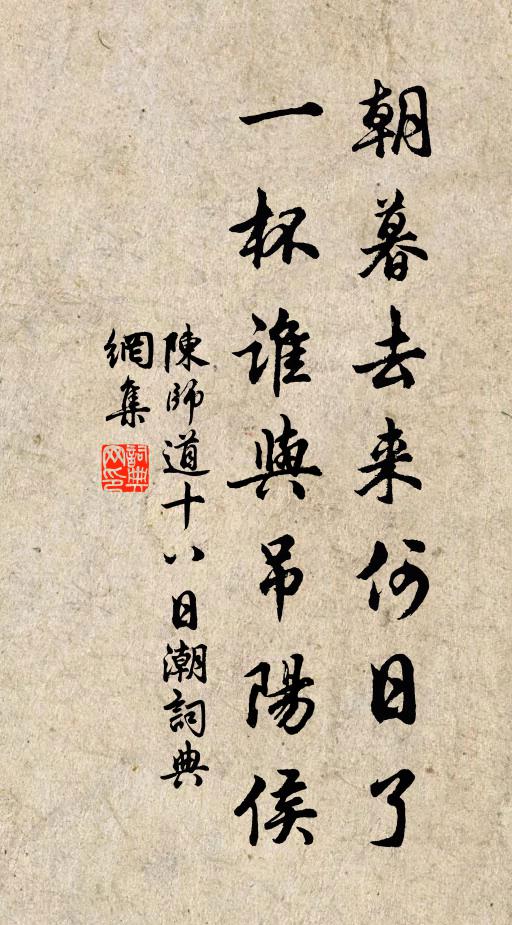 朝暮去来何日了
一杯誰與吊陽侯
陳師道十八日潮詞典
網集
詞典網印